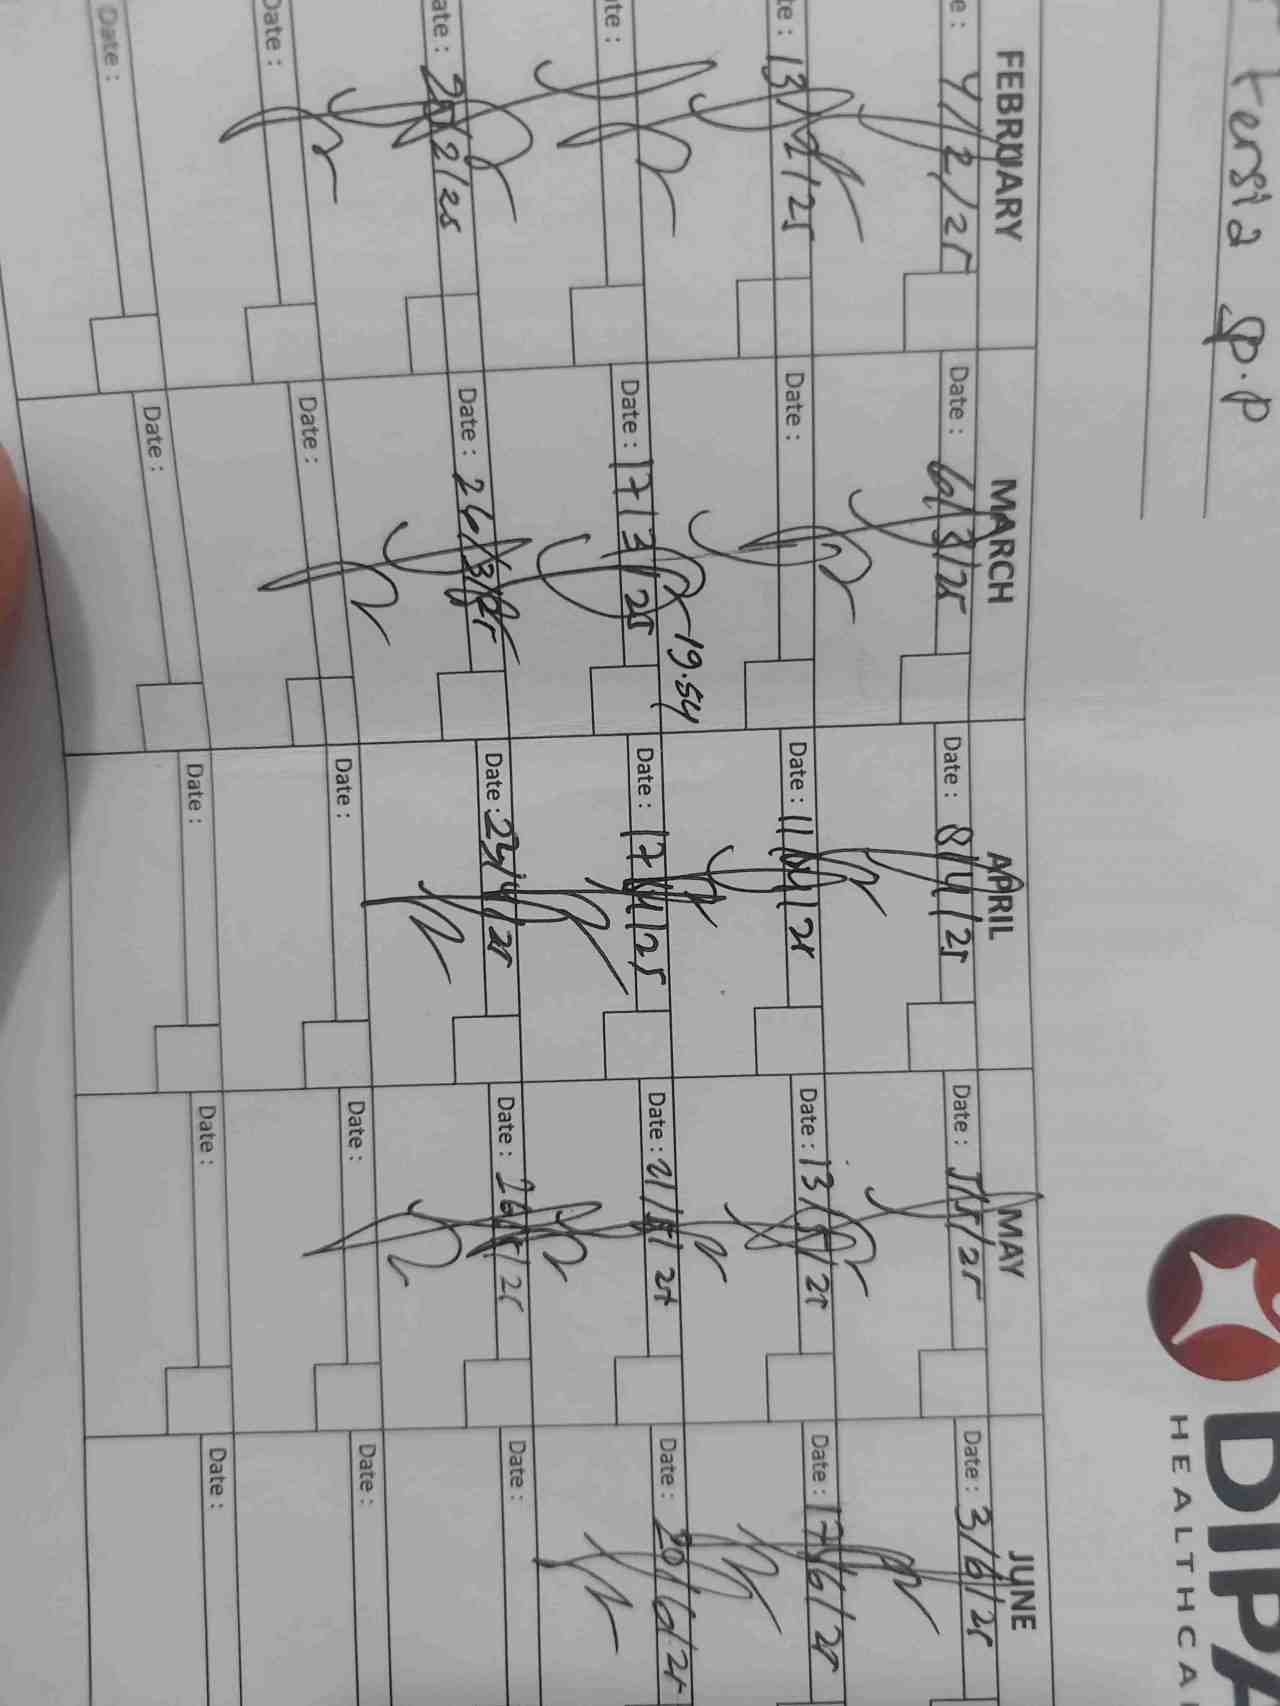 Persia SP.P
DIPA
HEALTHCA
FEBRUARY
MARCH
APRIL
MAY
JUNE
e : 4/2/25
Date : 6/3/25
Date : 8/4/25
Date : 5/5/25
Date : 3/6/25
te : 13/2/25
Date :
Date : 11/04/25
Date : 13/5/25
Date : 17/6/25
19.54
ate :
Date : 17/3/25
Date : 17/4/25
Date : 21/5/25
Date : 20/6/25
ate : 20/2/25
Date : 26/3/25
Date : 23/4/25
Date : 26/5/25
Date :
Date :
Date :
Date :
Date :
Date :
Date :
Date :
Date :
Date :
Date :